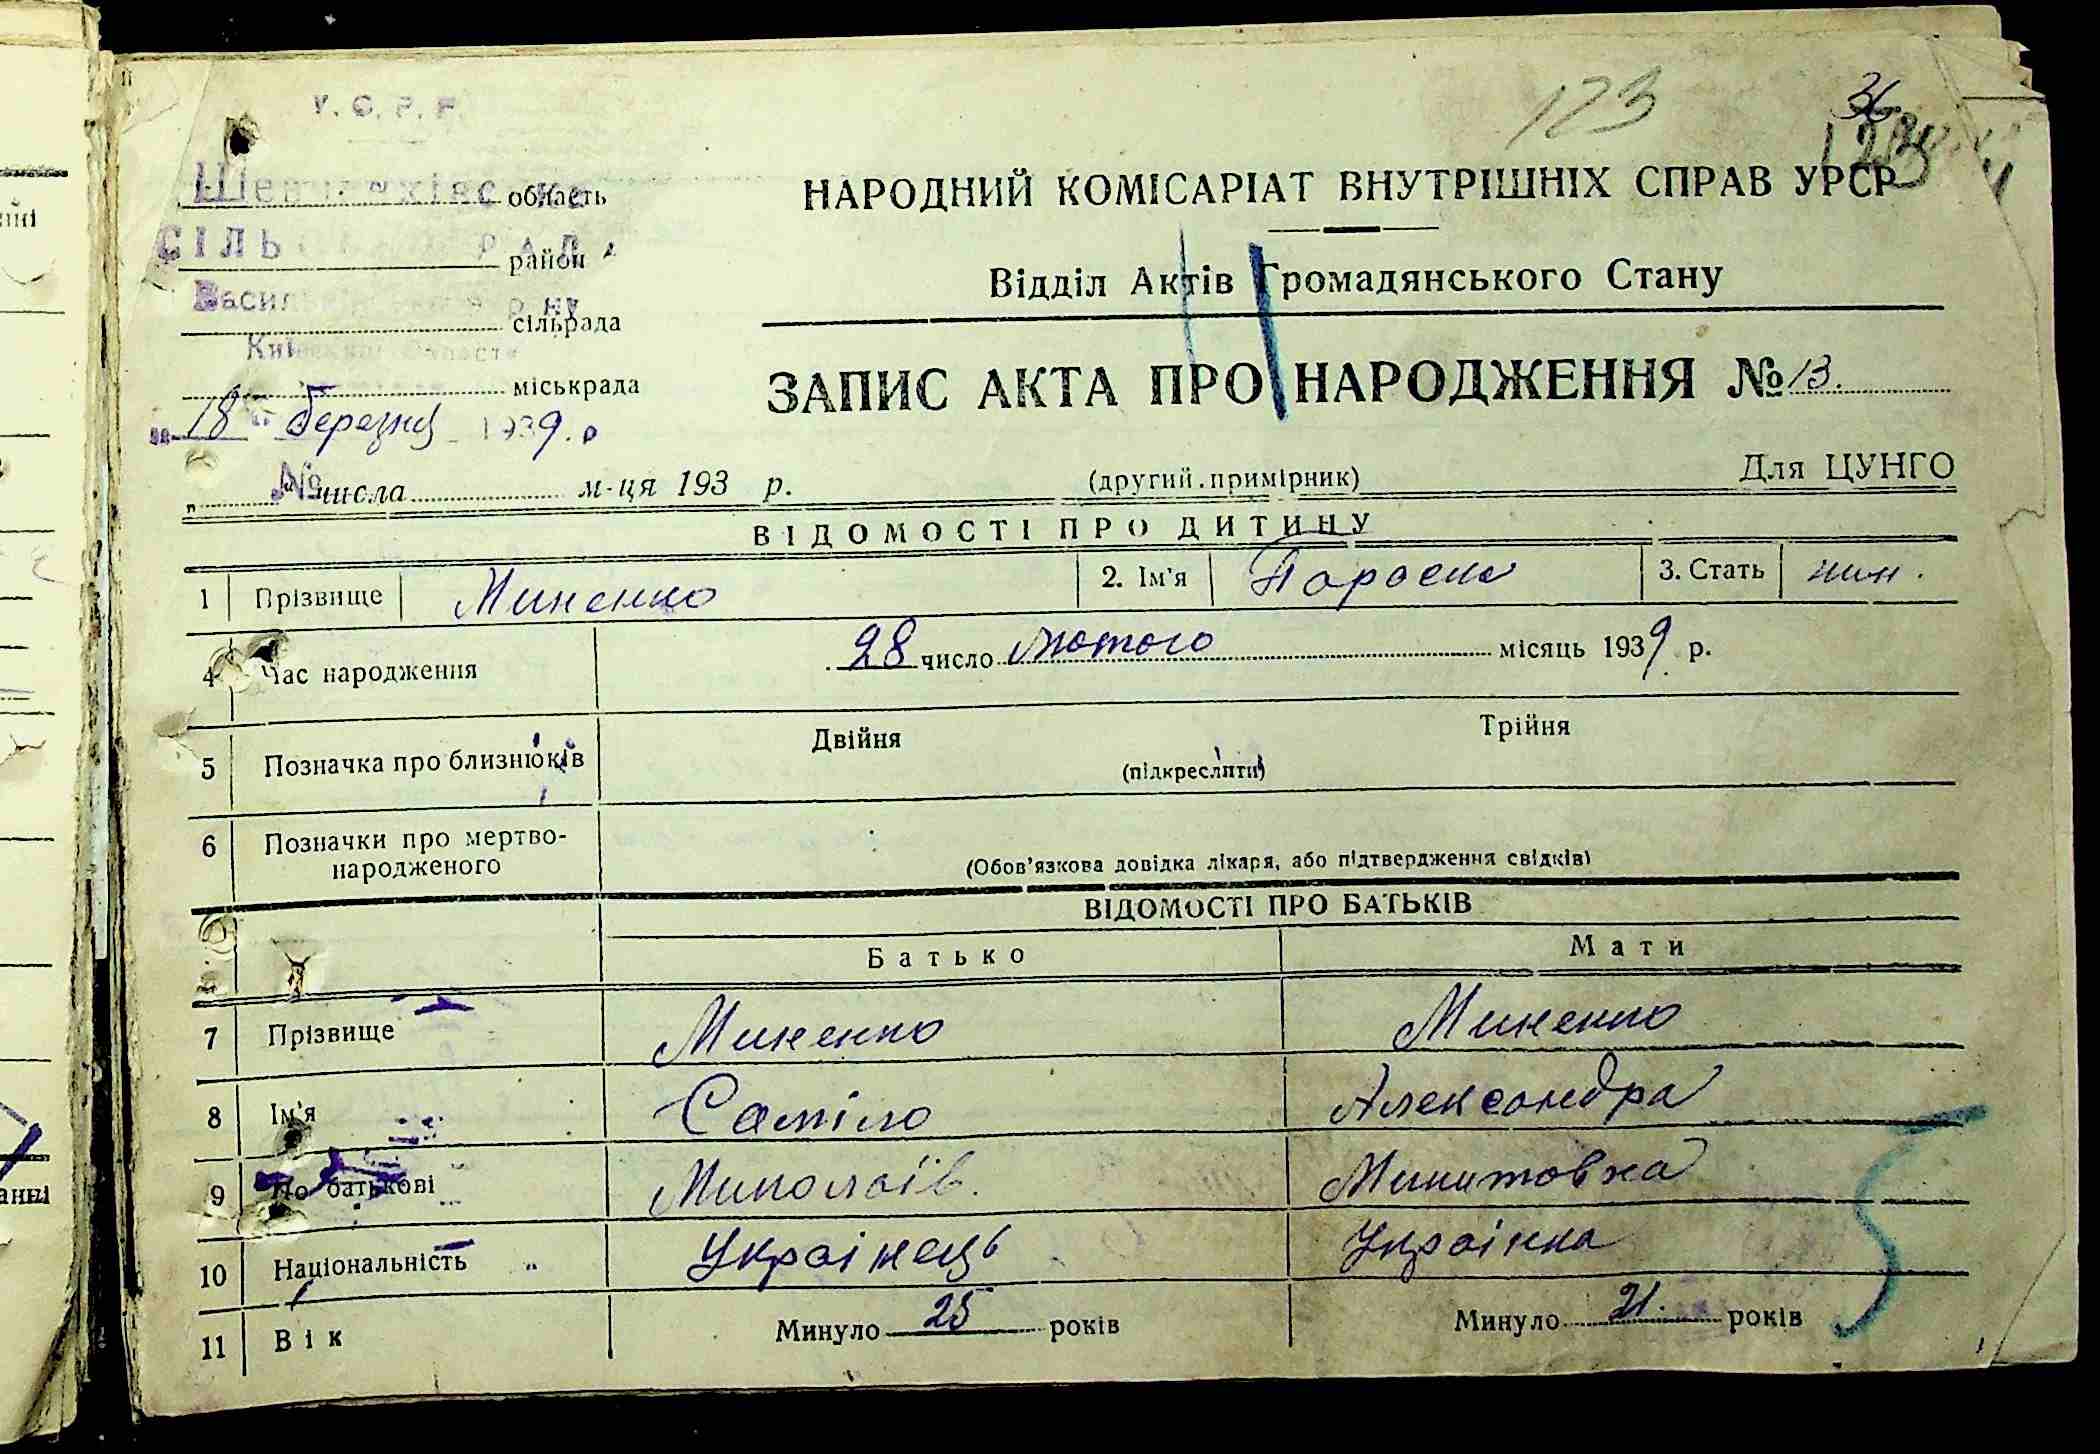 У.С.Р.Р.
123
36
Шевченківська область
СІЛЬСЬКА РАДА район
Васильківського р-ну сільрада
Київської області
міськрада
18 березня 1939 р
№
" числа м-ця 193 р.
НАРОДНИЙ КОМІСАРІАТ ВНУТРІШНІХ СПРАВ УРСР
Відділ Актів Громадянського Стану
ЗАПИС АКТА ПРО НАРОДЖЕННЯ № 13.
(другий примірник)
Для ЦУНГО
ВІДОМОСТІ ПРО ДИТИНУ
1 Прізвище Миненко 2. Ім'я Параска 3. Стать жин.
4 Час народження 28 число лютого місяць 1939 р.
5 Позначка про близнюків Двійня Трійня
(підкреслити)
6 Позначки про мертво-
народженого
(Обов'язкова довідка лікаря, або підтвердження свідків)
ВІДОМОСТІ ПРО БАТЬКІВ
Батько Мати
7 Прізвище Миненко Миненко
8 Ім'я Саміло Александра
9 По батькові Миколаїв. Микитовна
10 Національність Українець Українка
11 Вік Минуло 25 років Минуло 21. років